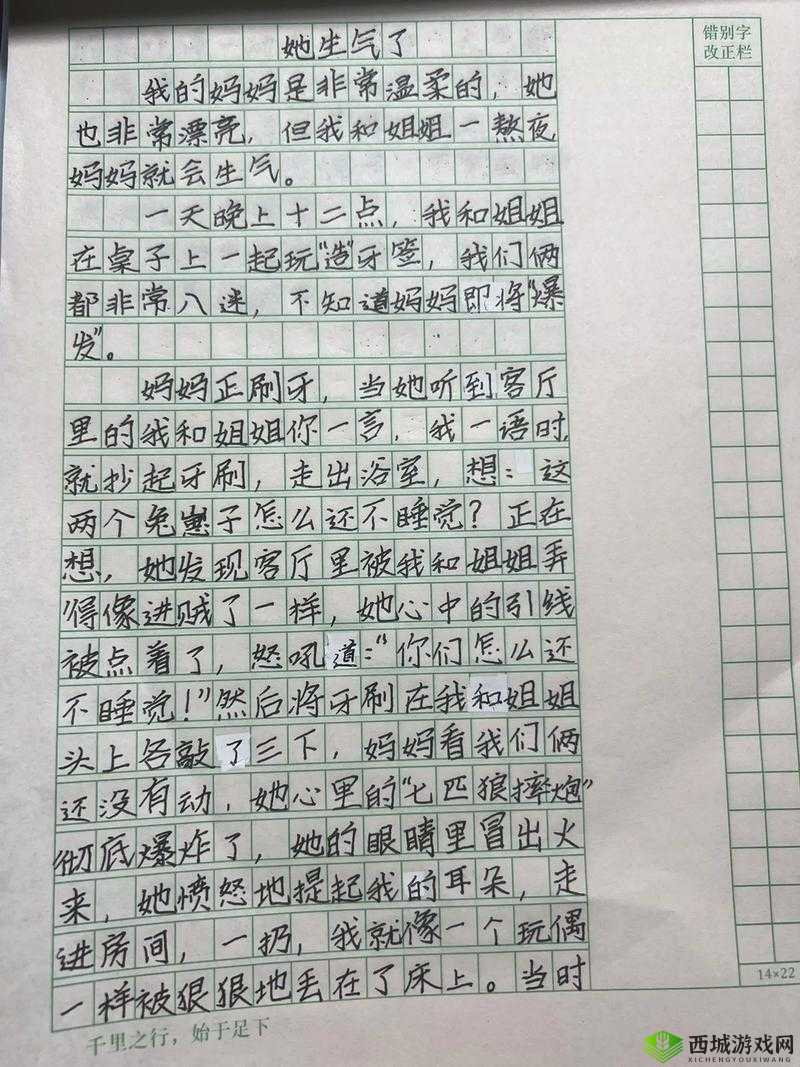 她生气了
错别字
改正栏
我的妈妈是非常温柔的，她
也非常漂亮，但我和姐姐一熬夜
妈妈就会生气。
一天晚上十二点，我和姐姐
在桌子上一起玩“造”牙签，我们俩
都非常入迷，不知道妈妈即将“爆
发”。
妈妈正刷牙，当她听到客厅
里的我和姐姐你一言，我一语时，
就抄起牙刷，走出浴室，想：这
两个兔崽子怎么还不睡觉？正在
想，她发现客厅里被我和姐姐弄
得像进贼了一样，她心中的引线
被点着了，怒吼道：“你们怎么还
不睡觉！”然后将牙刷在我和姐姐
头上各敲了三下，妈妈看我们俩
还没有动，她心里的“七匹狼摔炮”
彻底爆炸了，她的眼睛里冒出火
来，她愤怒地提起我的耳朵，走
进房间，一扔，我就像一个玩偶
一样被狠狠地丢在了床上。当时
14×22
千里之行，始于足下
西城游戏网
XICHENGYOUXIWANG